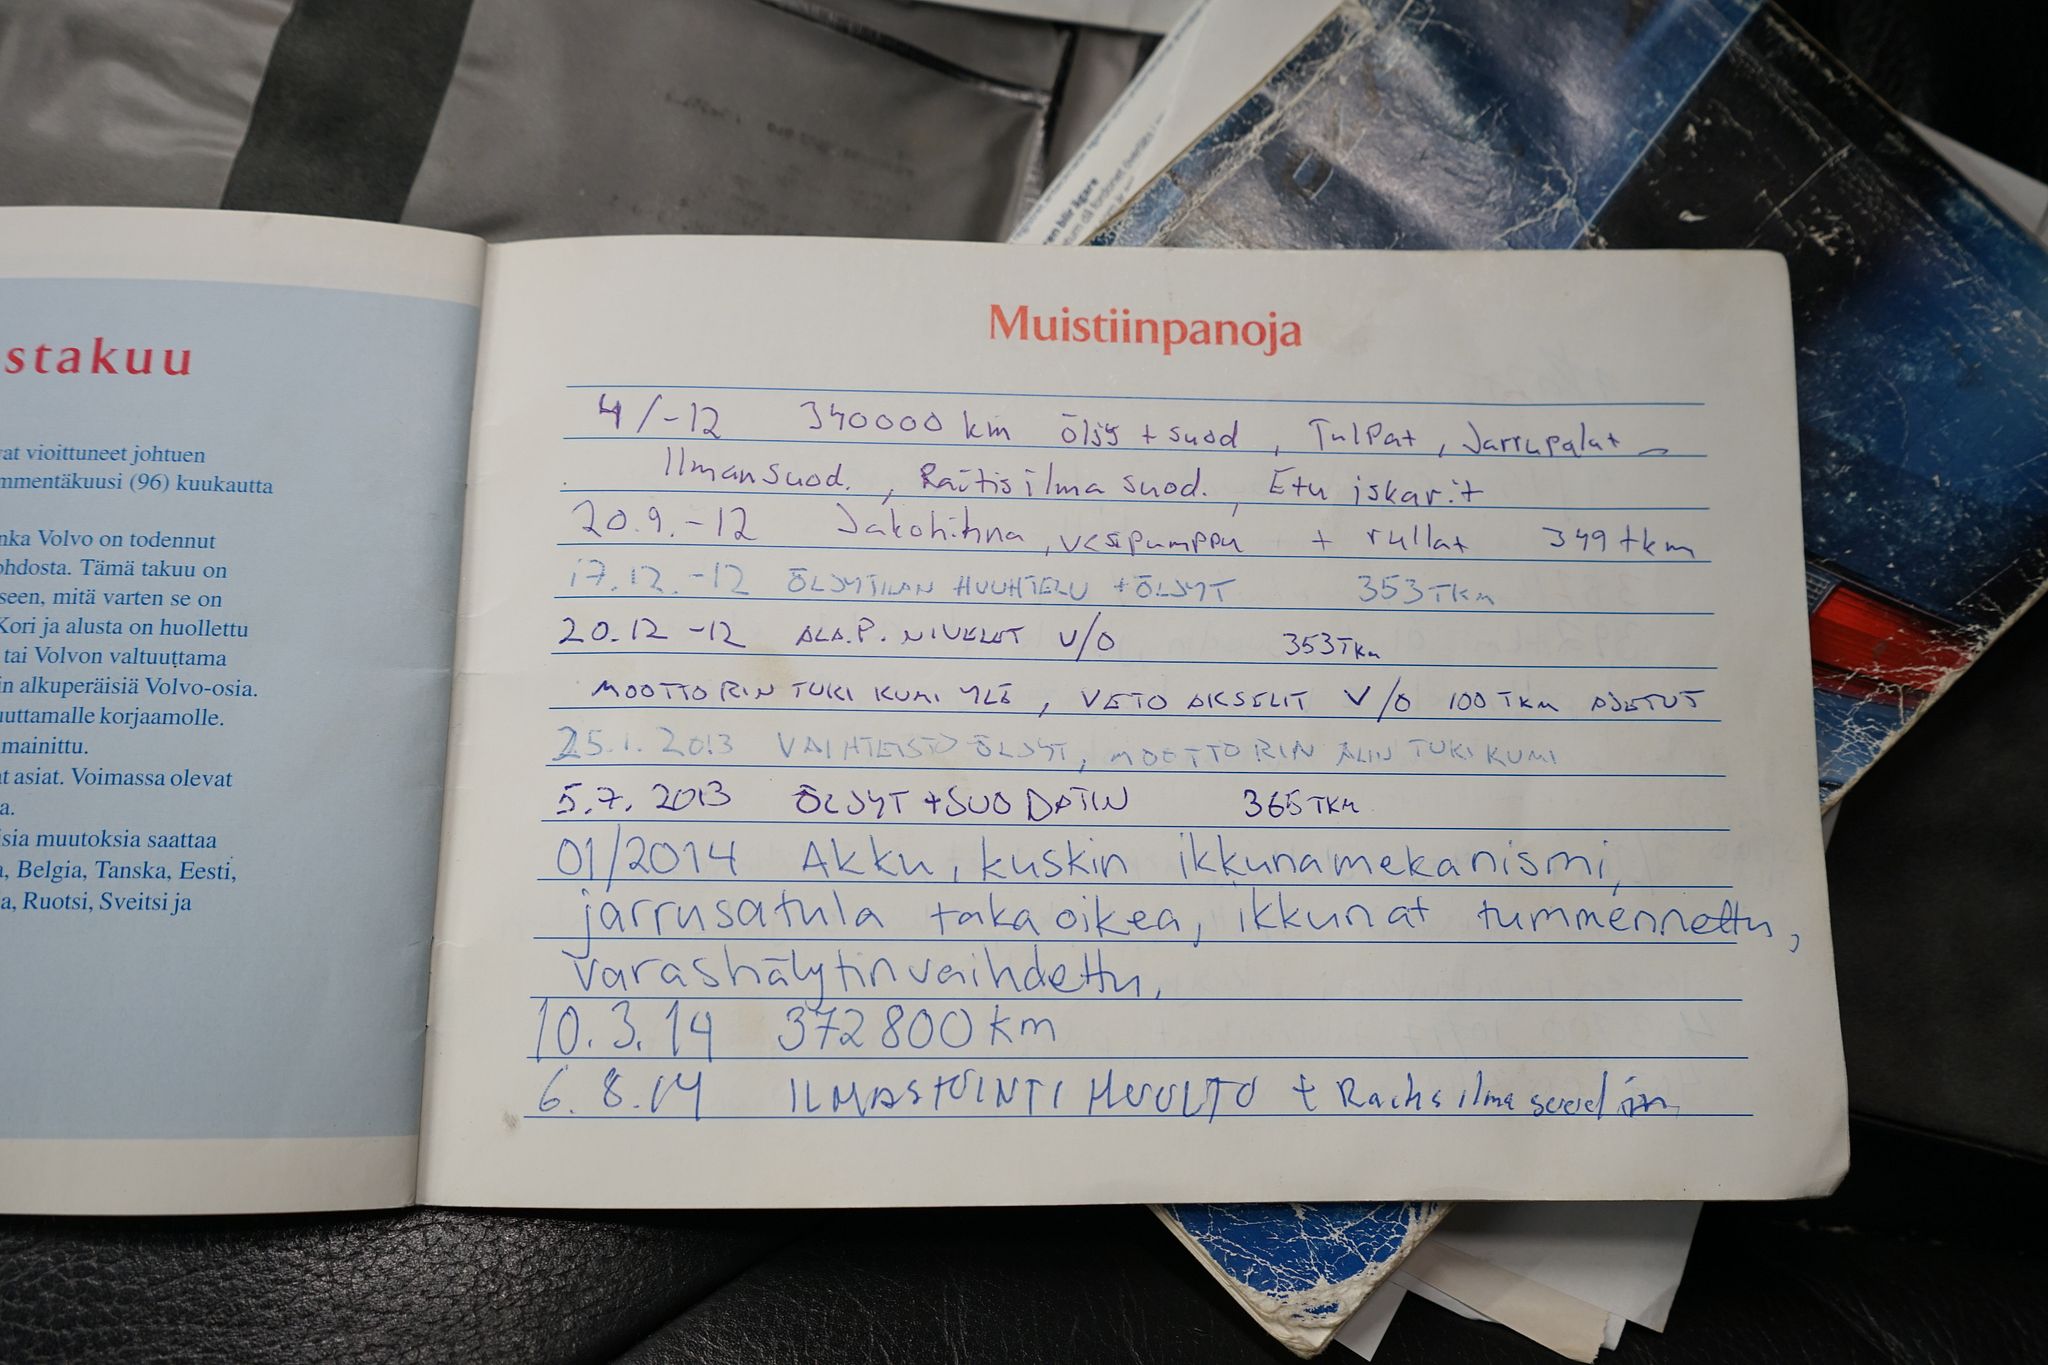 stakuu
vat vioittuneet johtuen
mmentäkuusi (96) kuukautta
nka Volvo on todennut
ohdosta. Tämä takuu on
seen, mitä varten se on
Kori ja alusta on huollettu
tai Volvon valtuuttama
in alkuperäisiä Volvo-osia.
uuttamalle korjaamolle.
mainittu.
at asiat. Voimassa olevat
a.
isia muutoksia saattaa
a, Belgia, Tanska, Eesti,
a, Ruotsi, Sveitsi ja
Muistiinpanoja
4/-12 340000 km öljy + suod, Tulpat, Jarrupalat
Ilmansuod., Raitisilma suod., Etu iskarit
20.9.-12 Jakohihna, vesipumppu + rullat 349 tkm
17.12.-12 ÖLJYTILAN HUUHTELU + ÖLJYT 353 TKM
20.12-12 ALA.P. NIVELET V/O 353 TKM
MOOTTORIN TUKI KUMI YLÄ, VETO AKSELIT V/O 100 TKM AJETUT
25.1.2013 VAIHTEISTO ÖLJYT, MOOTTORIN ALIN TUKI KUMI
5.7.2013 ÖLJYT + SUODATIN 365 TKM
01/2014 Akku, kuskin ikkunamekanismi,
jarrusatula taka oikea, ikkunat tummennettu,
varashälytin vaihdettu.
10.3.14 372800 km
6.8.14 ILMASTOINTI HUOLTO +
ren blir ägare